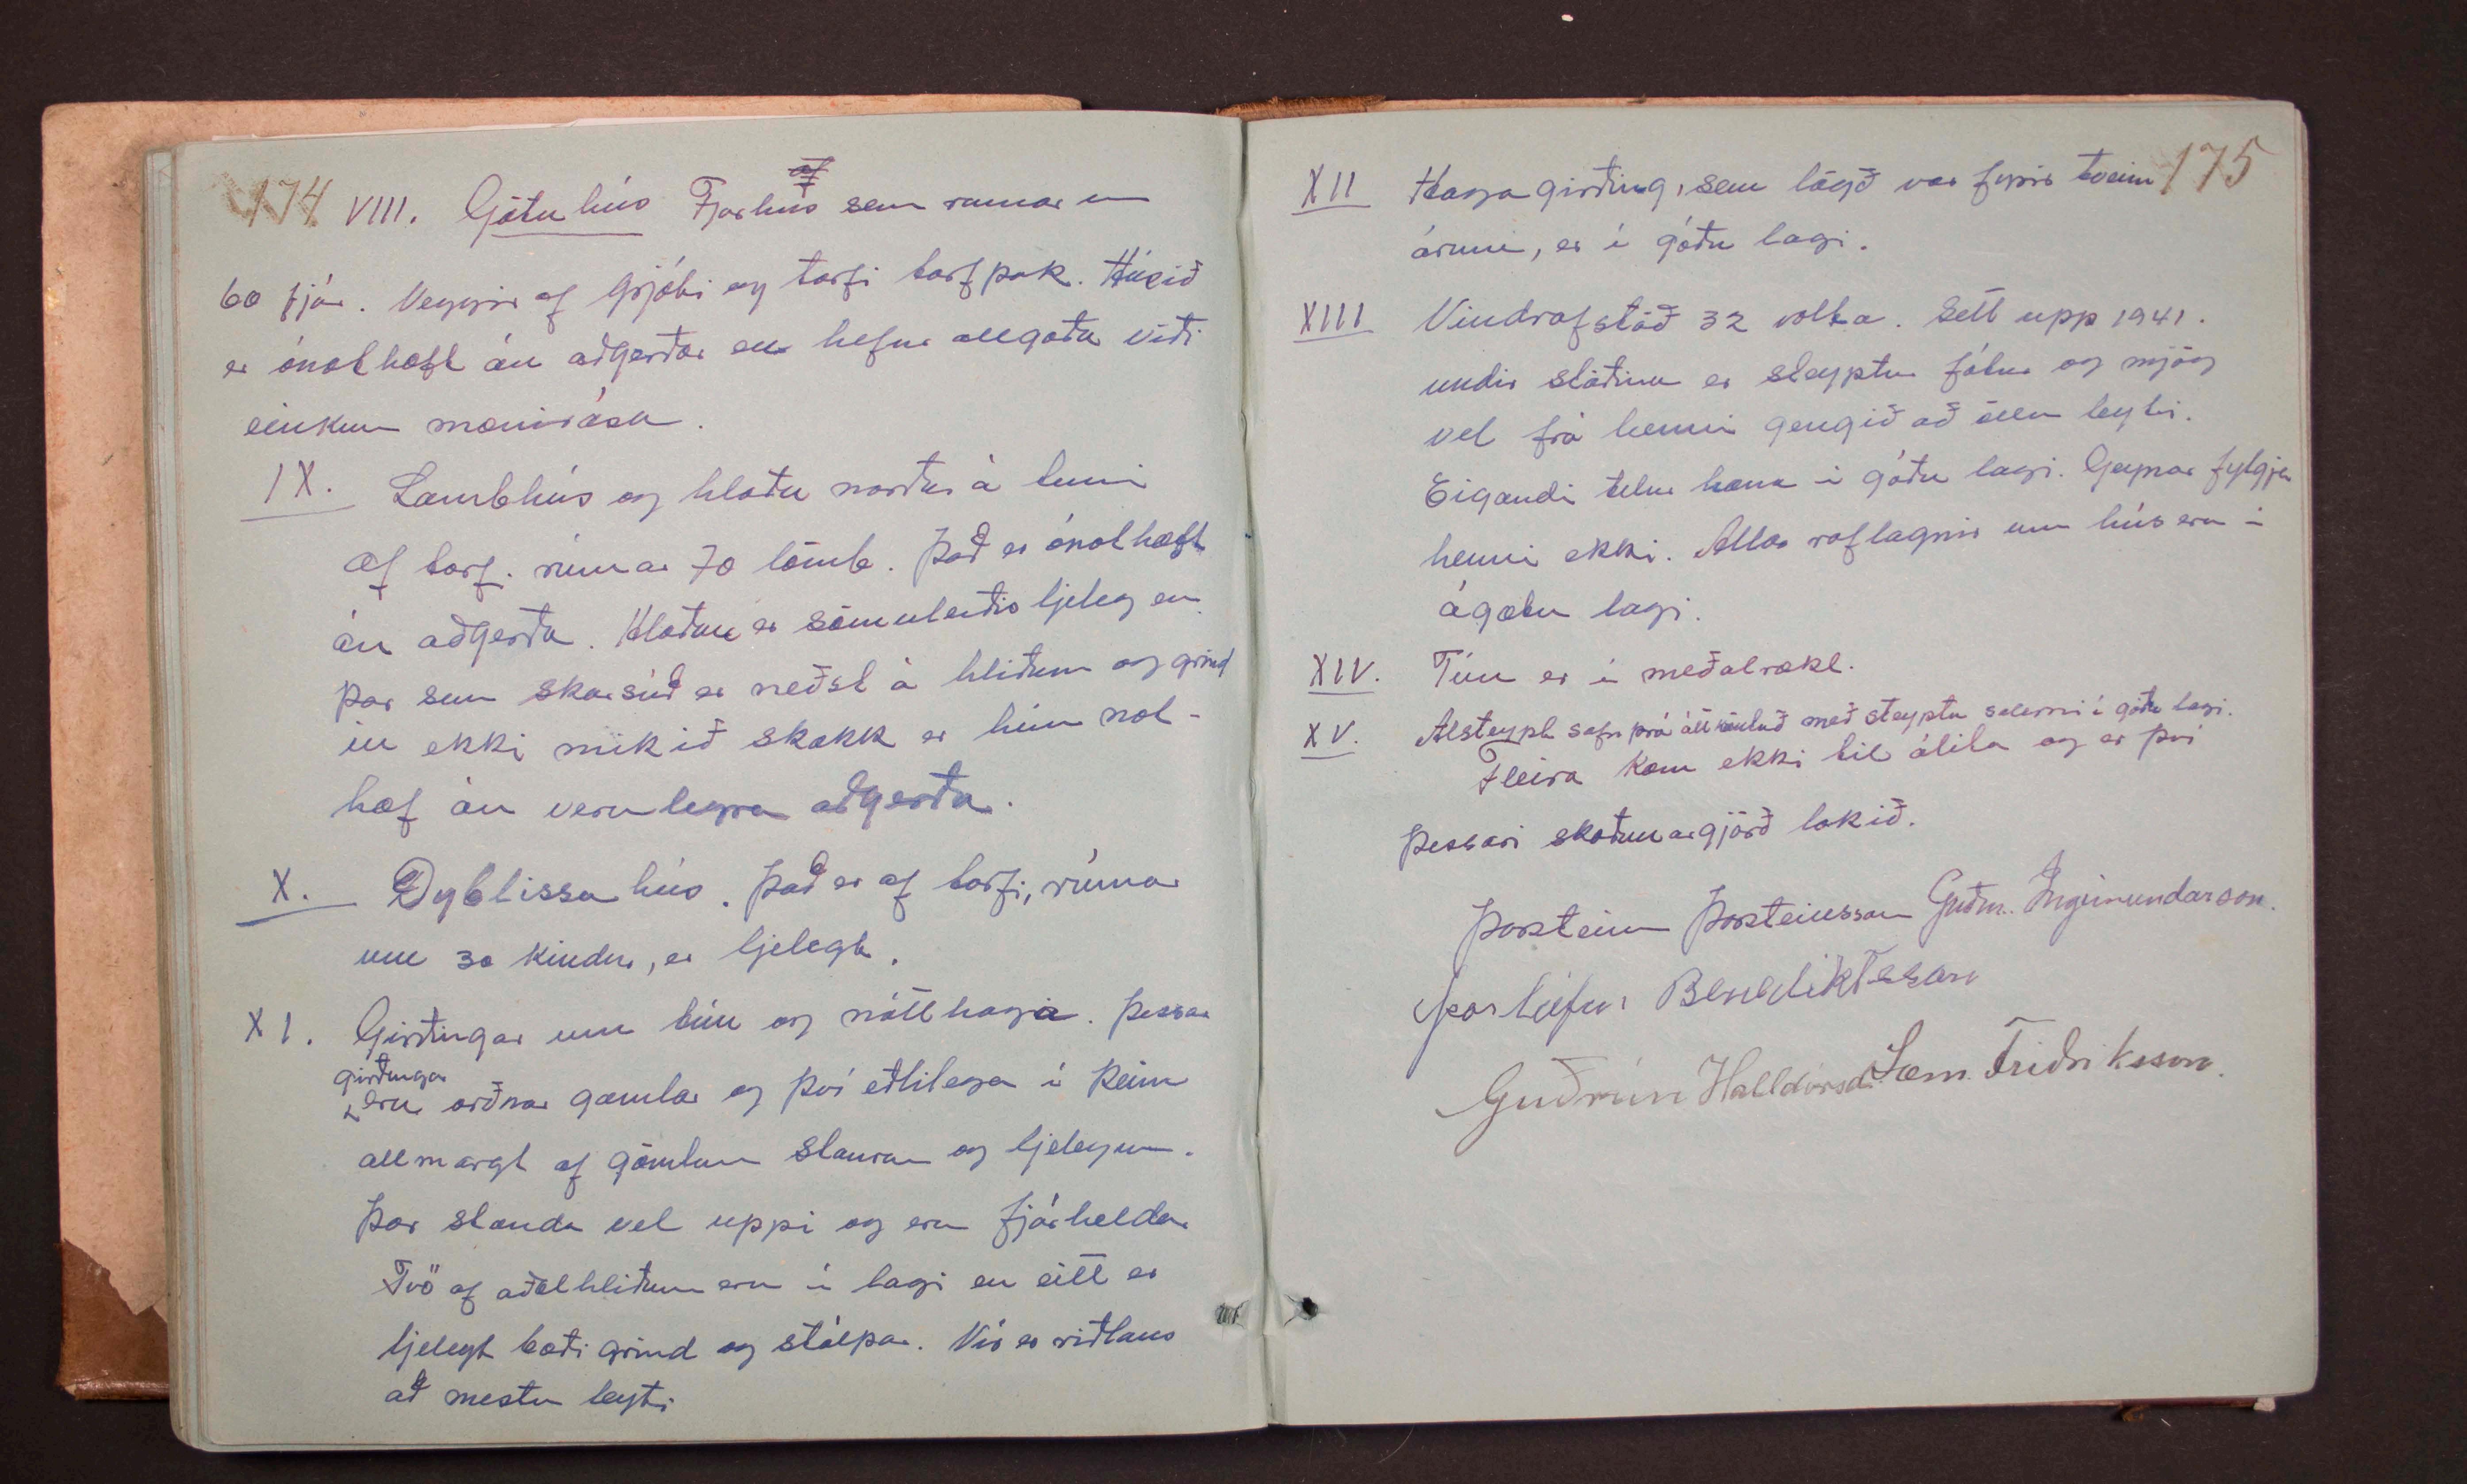 174
VIII. Götuhús Fjárhús sem rúmar um
60 fjár. Veggir af grjóti og torfi torfþak. Húsið
er ónothæft án aðgerðar en hefur allgóða viði
einkum mænirása.
IX. Lambhús og hlaða norður á túni
af torf. rúmar 70 lömb. Það er ónothæft
án aðgerða. Hlaðan er sömuleiðis ljeleg en
þar sem skarsúð er neðst á hliðum og grind
in ekki mikið skökk er hún not-
hæf án verulegra aðgerða.
X. Dyblissu hús. Það er af torfi, rúmar
um 30 kindur, er ljelegt.
XI. Girðingar um tún og nátthaga. Þessar
girðingar
eru orðnar gamlar og því eðlilega í þeim
allmargt af gömlum staurum og ljelegum.
Þær standa vel uppi og eru fjárheldar
Tvö af aðalhliðum eru í lagi en eitt er
ljelegt bæði grind og stólpar. Vír er riðlaus
að mestu leyti
175
XII Hagagirðing, sem lögð var fyrir tveim
árum, er í góðu lagi.
XIII Vindrafstöð 32 volta. Sett upp 1941.
undir stöðinni er steyptur fótur og mjög
vel frá henni gengið að öllu leyti.
Eigandi telur hana í góðu lagi. Geymar fylgja
henni ekki. Allar raflagnir um hús eru í
ágætu lagi.
XIV. Tún er í meðalrækt.
XV. Alsteypt safnþró með steyptu salerni í góðu lagi.
Fleira kom ekki til álita og er því
þessari skoðunargjörð lokið.
Þorsteinn Þorsteinsson Guðm. Ingimundarson.
Þorleifur Benediktsson
Guðrún Halldórsd. Sæm. Friðriksson.